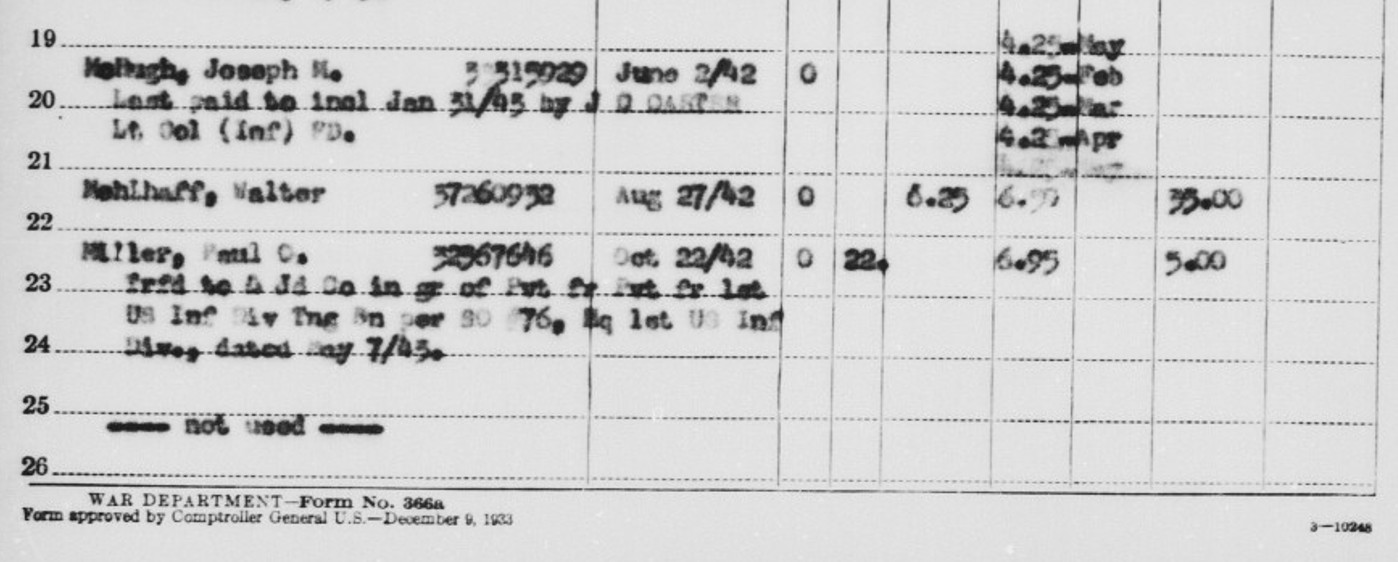 19 4.25-May
McHugh, Joseph M. 32315929 June 2/42 0 4.25-Feb
20 Last paid to incl Jan 31/43 by J C CARTER 4.25-Mar
Lt Col (Inf) FD. 4.25-Apr
21
Mehlhaff, Walter 37260932 Aug 27/42 0 6.25 35.00
22
Miller, Paul O. 32367646 Oct 22/42 0 22. 6.95 5.00
23 Trfd to Jd Co in gr of Pvt fr Pvt fr 1st
US Inf Div Tng Bn per SO #76, Hq 1st US Inf
24 Div., dated May 7/43.
25
---- not used ----
26
WAR DEPARTMENT—Form No. 366a
Form approved by Comptroller General U.S.—December 9, 1933
3—10248